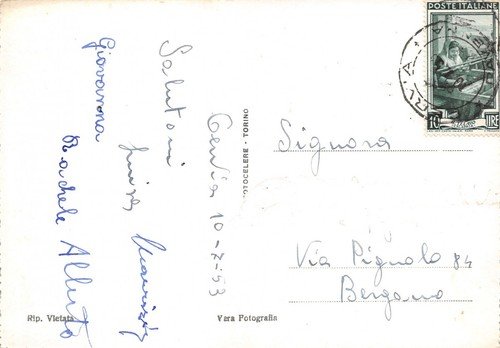 POSTE ITALIANE
10 LIRE
Cervia 10-7-53
Saluti
Maurizio
Giovanna
Rachele Alberto
FOTOCELERE - TORINO
Signora
Via Pignolo 84
Bergamo
Rip. Vietata
Vera Fotografia